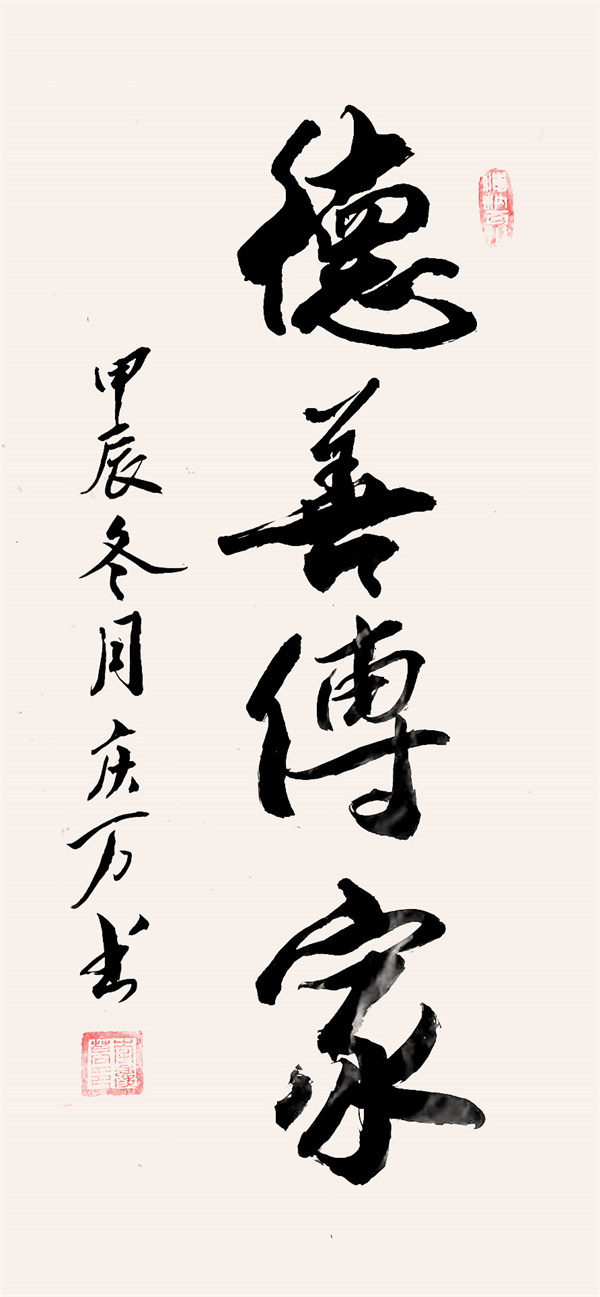 德善傳家
甲辰冬月庆万书